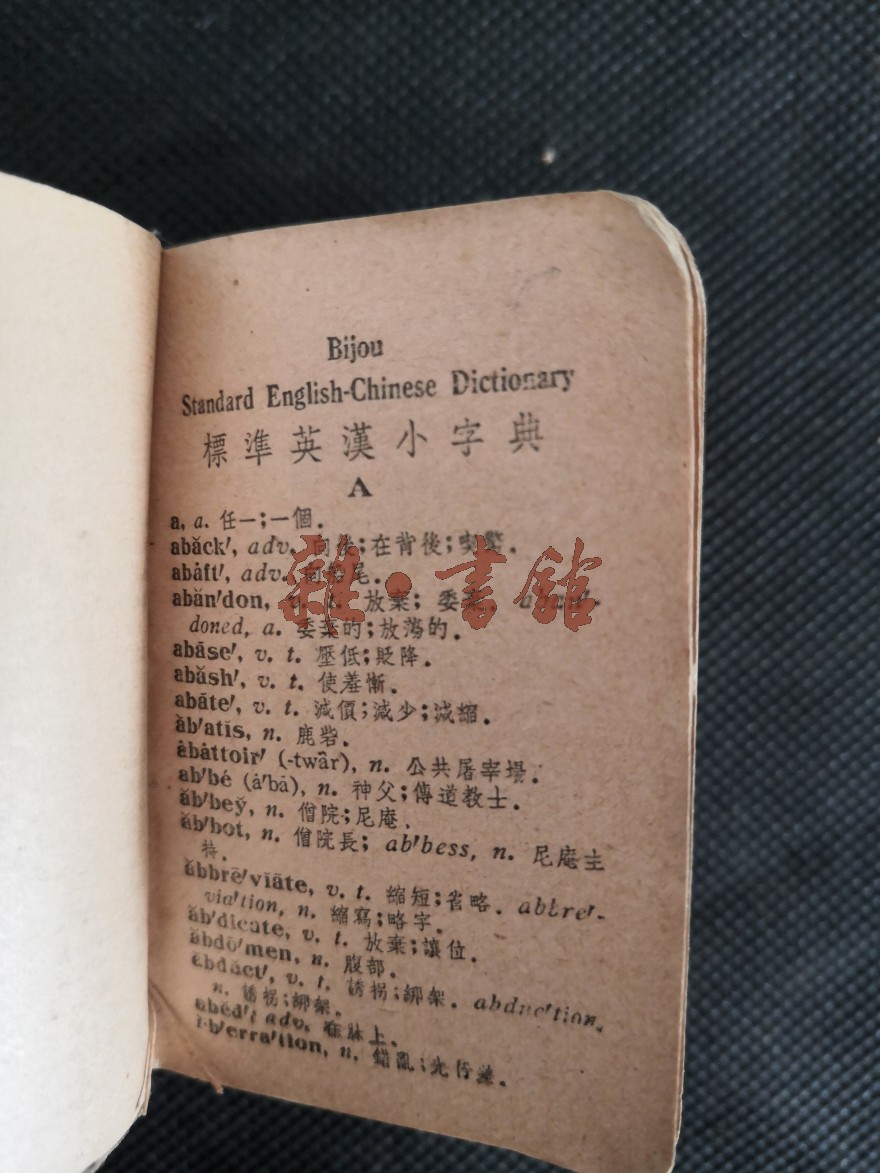 Bijou
Standard English-Chinese Dictionary
標準英漢小字典
A
a, a. 任一;一個.
abăck′, adv. 向後;在背後;喫驚.
abȧft′, adv. 尾.
abăn′don, v. t. 放棄; 委棄.
doned, a. 委棄的;放蕩的.
abāse′, v. t. 壓低;貶降.
abăsh′, v. t. 使羞慚.
abāte′, v. t. 減價;減少;減縮.
ăb′atĭs, n. 鹿砦.
ȧbȧttoir′ (-twâr), n. 公共屠宰場.
ab′bé (ȧ′bā), n. 神父;傳道教士.
ăb′bey̆, n. 僧院;尼庵.
ăb′bot, n. 僧院長; ab′bess, n. 尼庵主
持.
ăbbrē′viāte, v. t. 縮短;省略. abbre′-
via′tion, n. 縮寫;略字.
ăb′dĭcate, v. t. 放棄;讓位.
ăbdō′men, n. 腹部.
ăbdŭct′, v. t. 誘拐;綁架. abduc′tion,
n. 誘拐;綁架.
abĕd′, adv. 在牀上.
ăb′erra′tion, n. 錯亂;光行差.
雜·書館